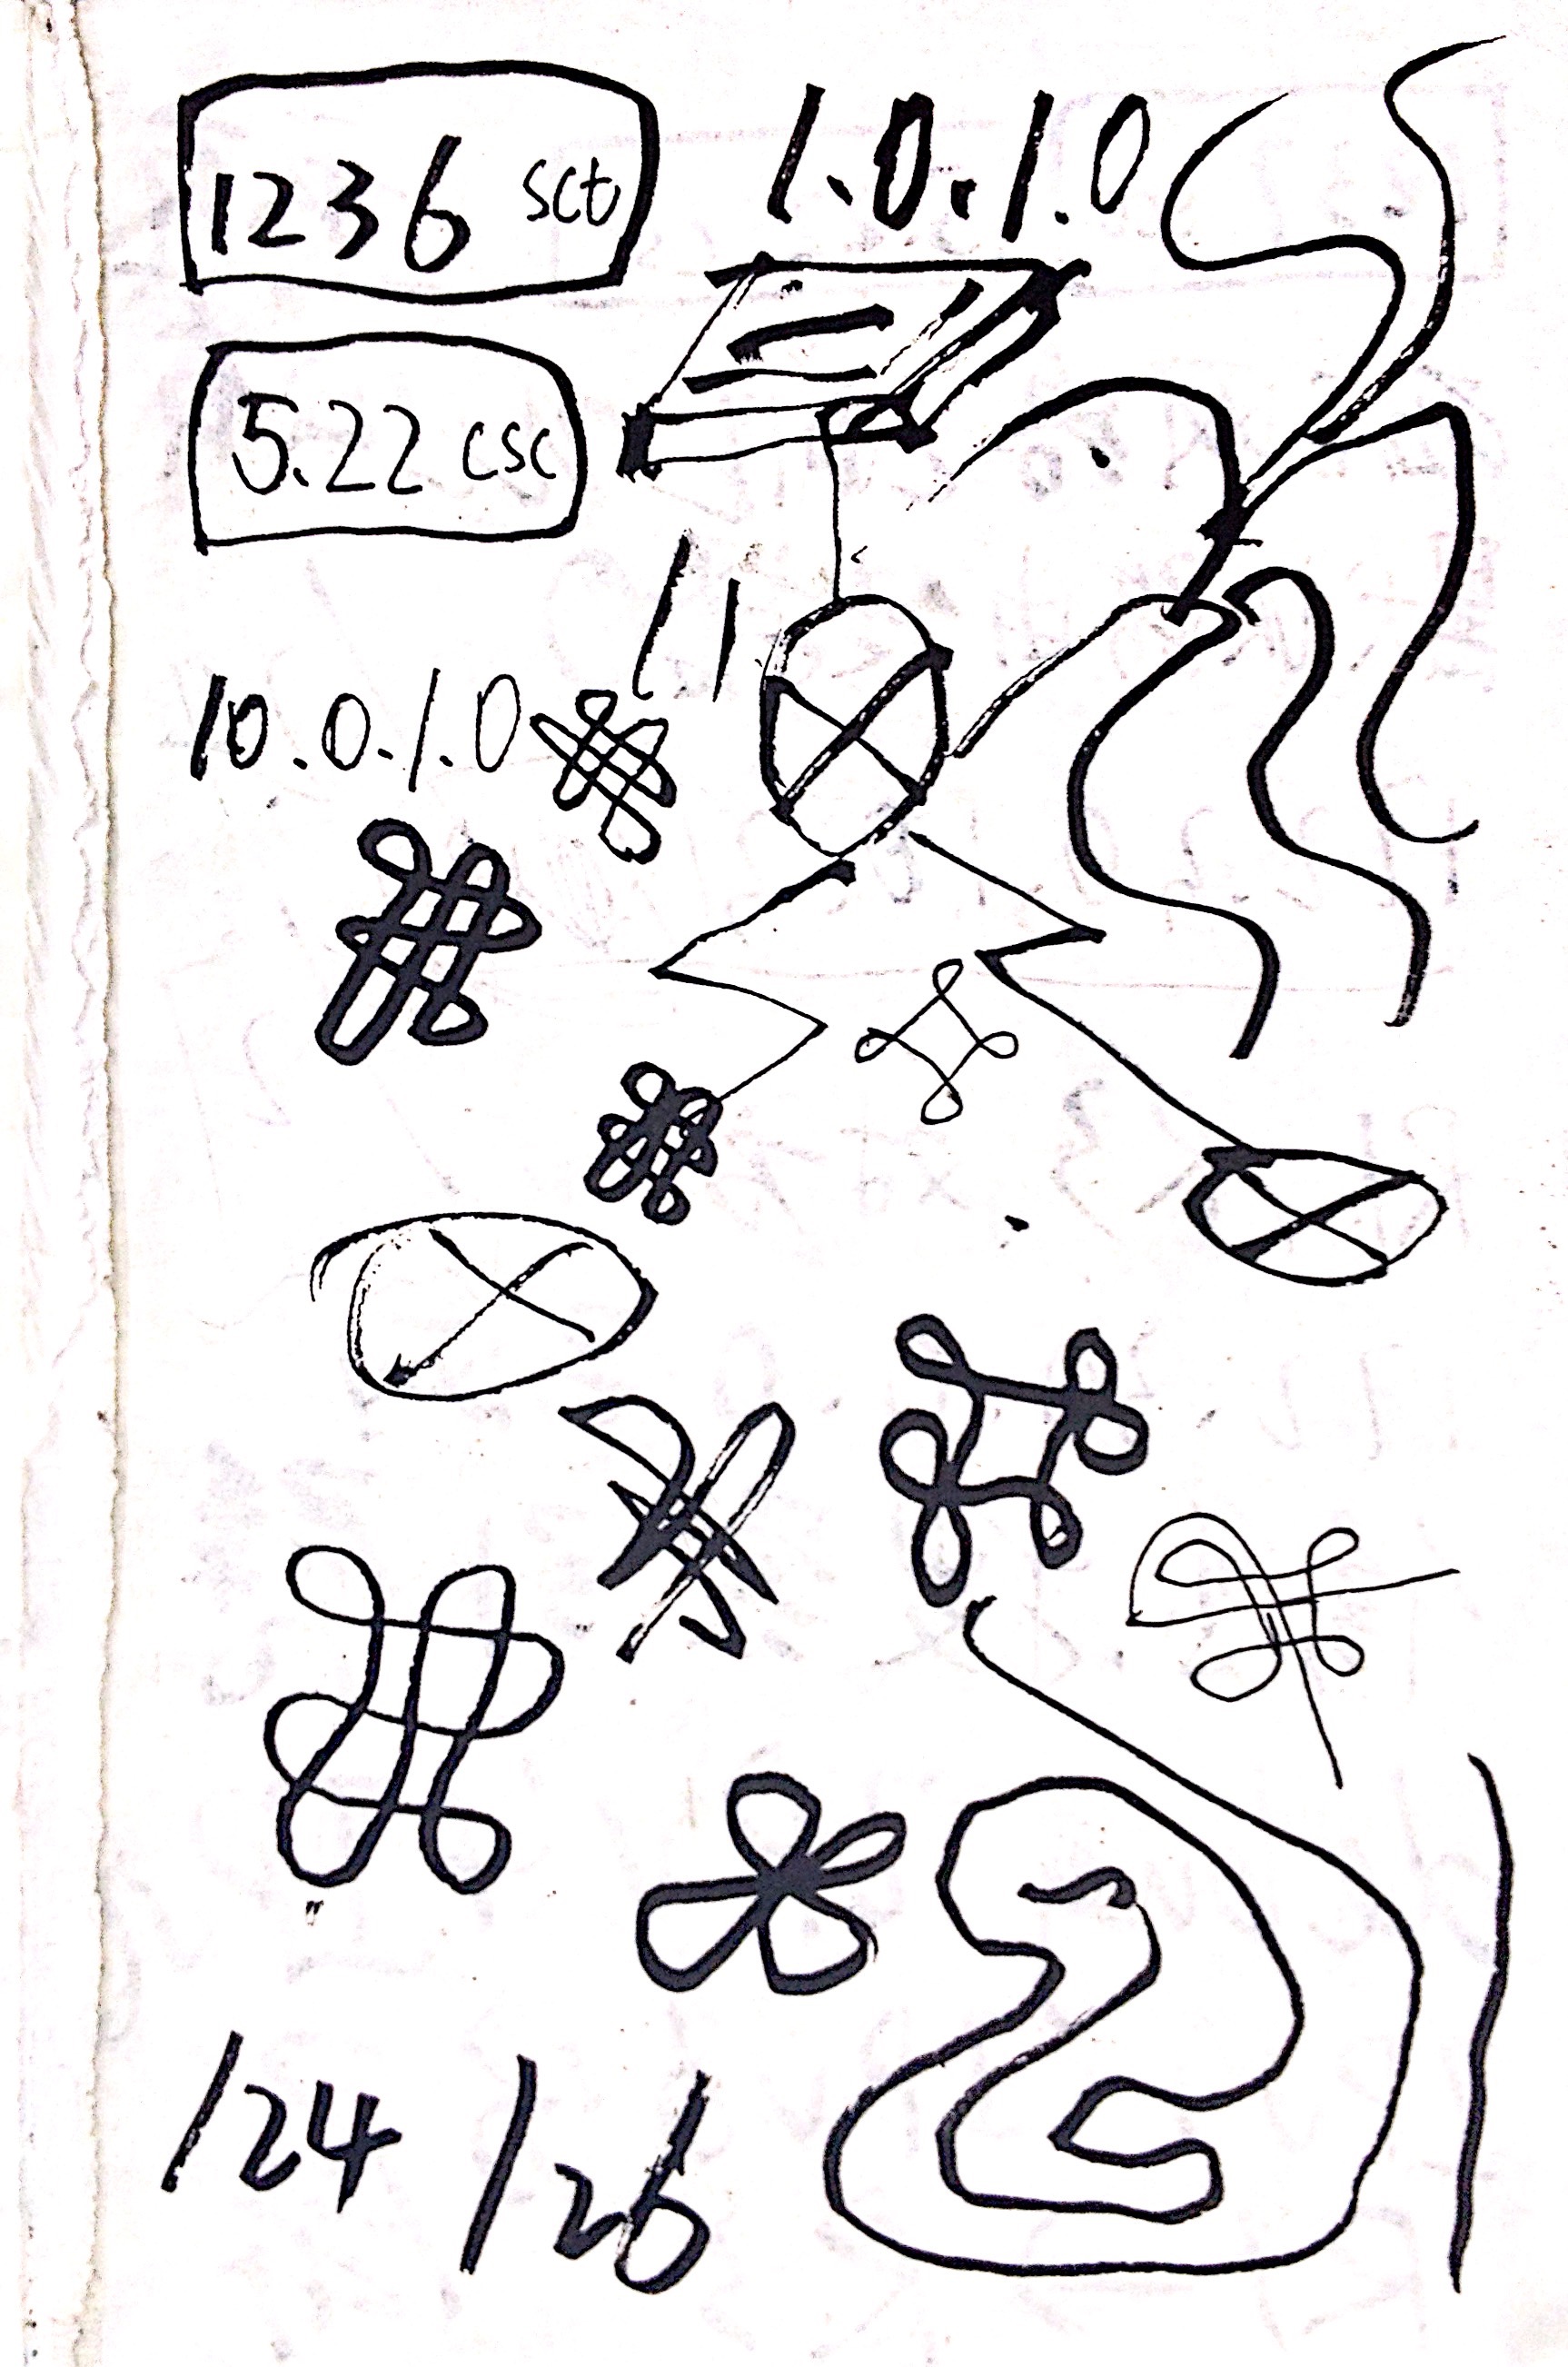 1236 sct
1.0.1.0
5.22 csc
11
10.0.1.0
/24 /26